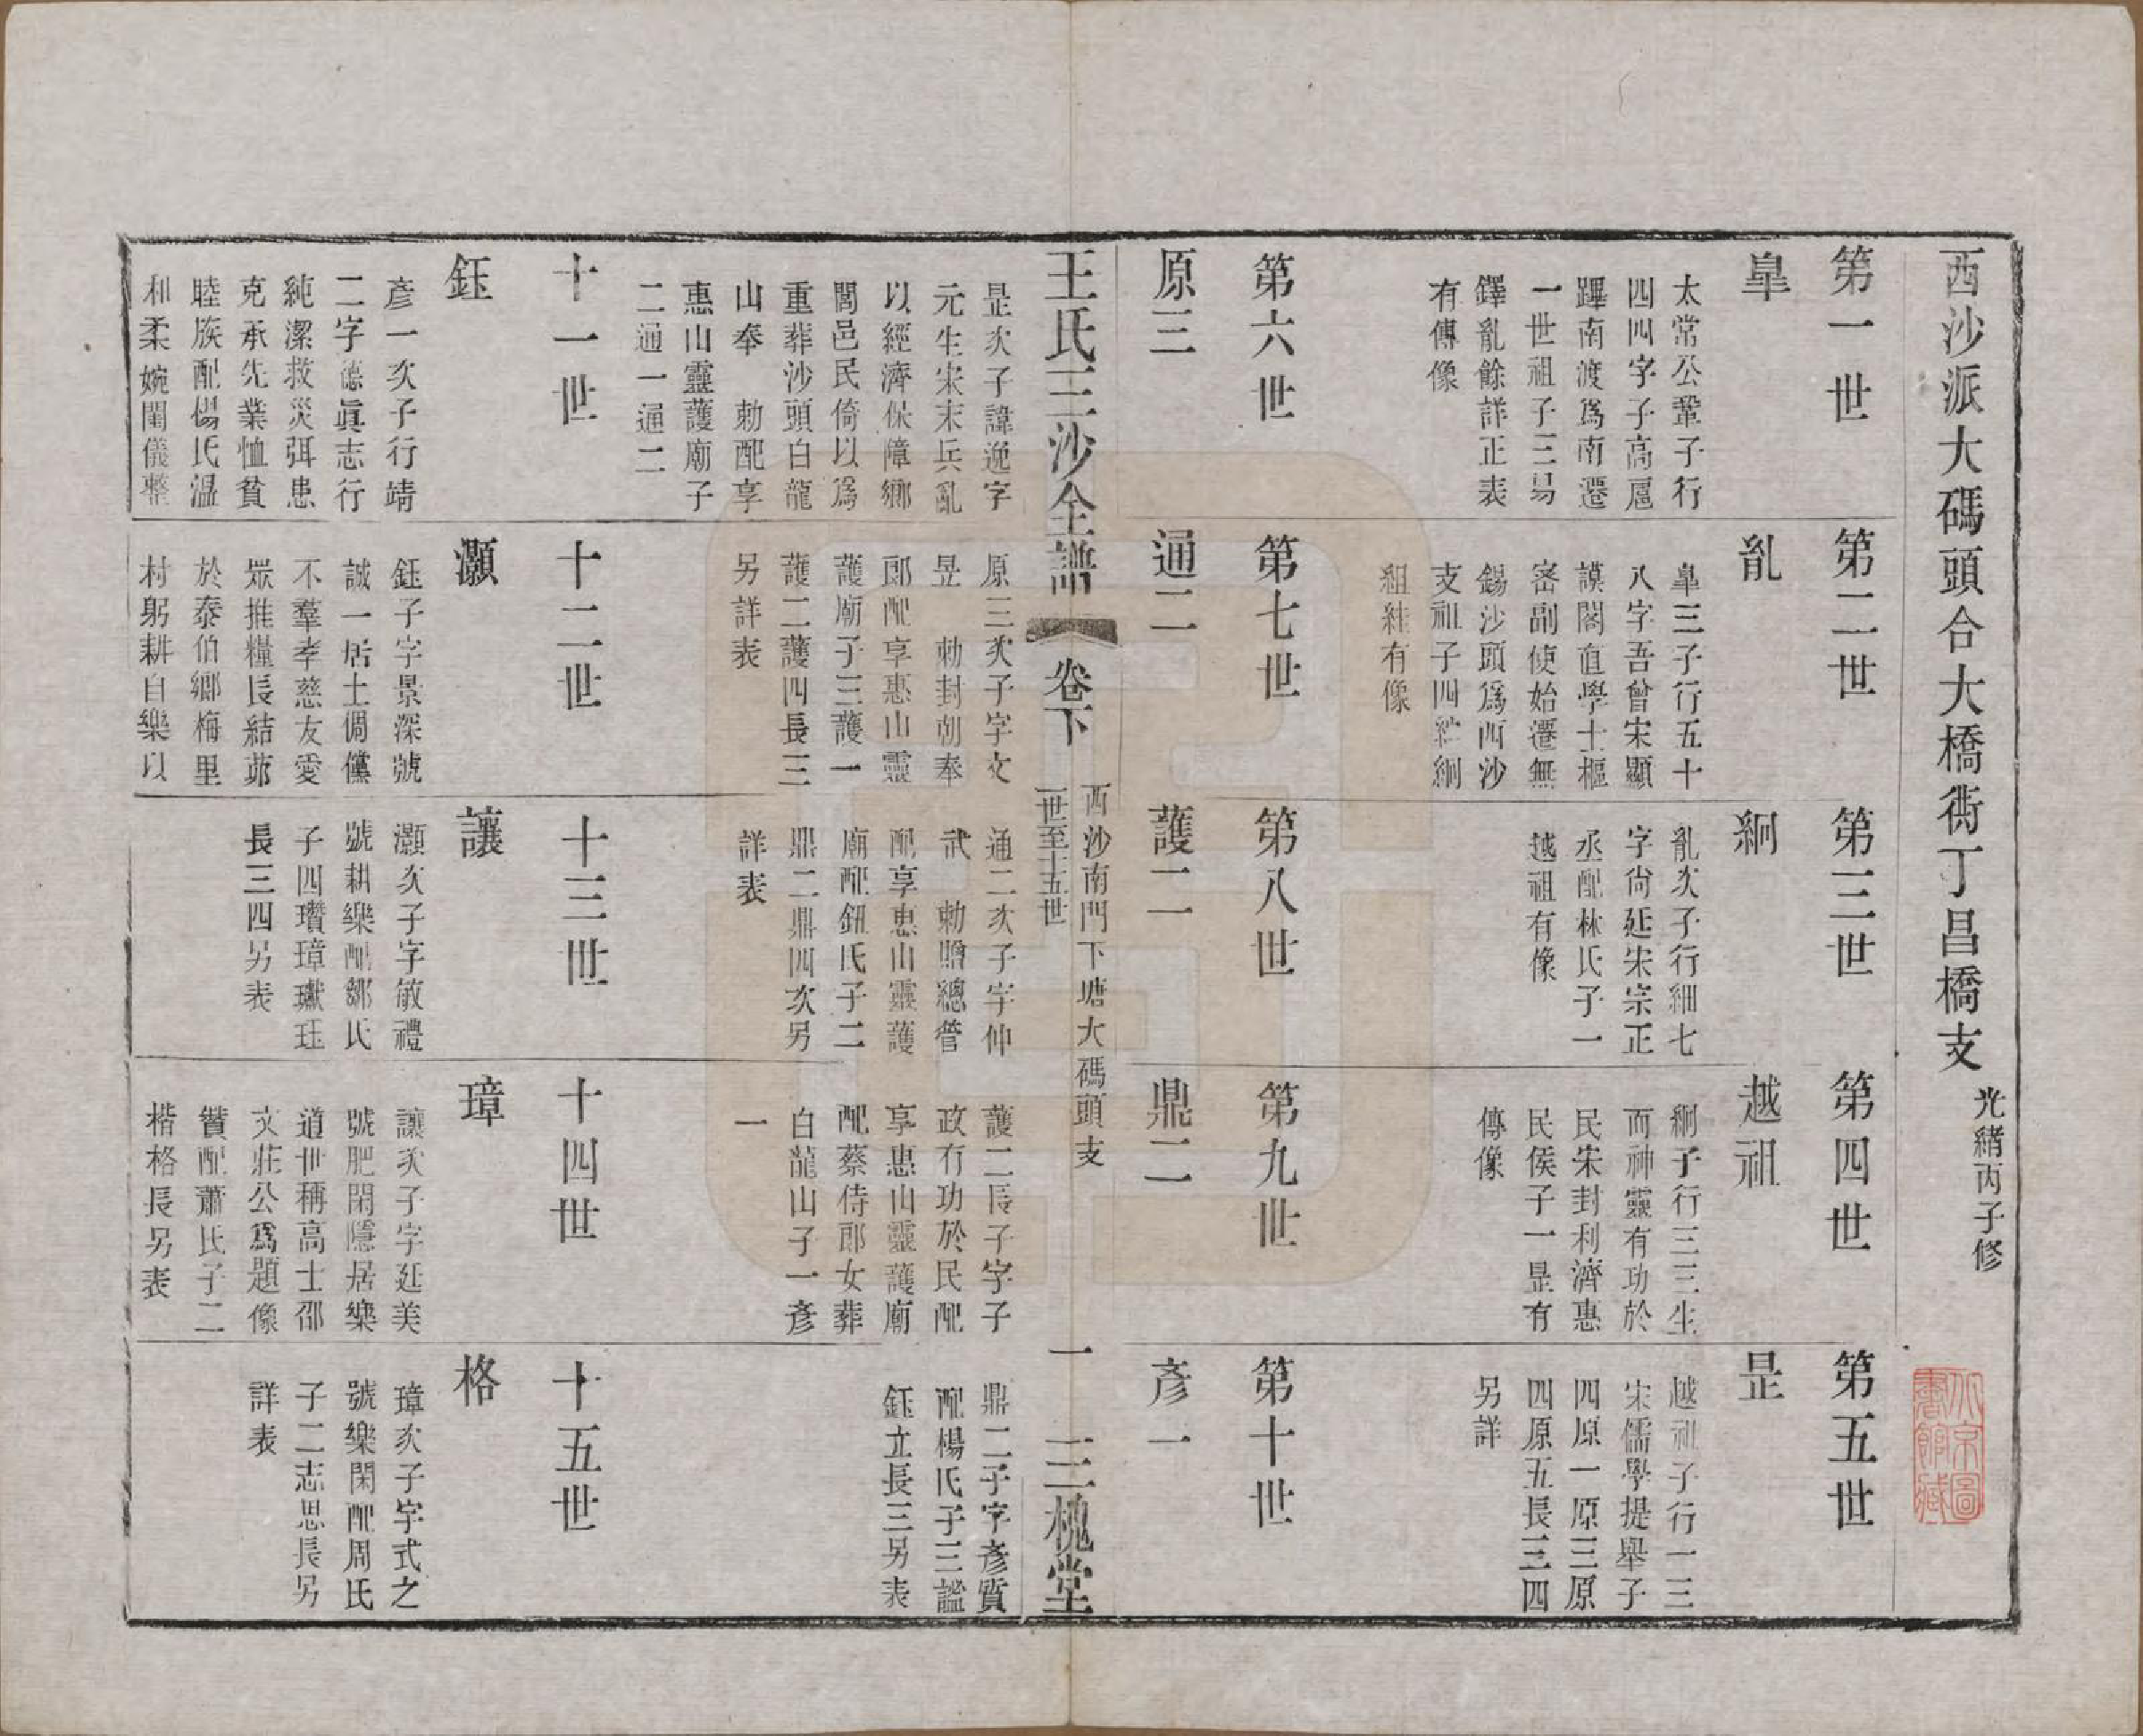 西沙派大碼頭合大橋衖丁昌橋支
光緒丙子修
第一世
皐
太常公鞏子行
四四字子高扈
蹕南渡爲南遷
一世祖子三易
鐸亂餘詳正表
有傳像
第二世
亂
皐三子行五十
八字吾曾宋顯
謨閣直學士樞
密副使始遷無
錫沙頭爲西沙
支祖子四紲絅
組絓有像
第三世
絅
亂次子行細七
字尙延宋宗正
丞配林氏子一
越祖有像
第四世
越祖
絅子行三三生
而神靈有功於
民宋封利濟惠
民侯子一昰有
傳像
第五世
昰
越祖子行一三
宋儒學提舉子
四原一原三原
四原五長三四
另詳
第六世
原三
昰次子諱逸字
元生宋末兵亂
以經濟保障鄉
閭邑民倚以爲
重葬沙頭白龍
山奉 勅配享
惠山靈護廟子
二通一通二
第七世
通二
原三次子字文
昱 勅封朝奉
郎配享惠山靈
護廟子三護一
護二護四長三
另詳表
第八世
護二
通二次子字仲
武 勅贈總管
配享惠山靈護
廟配鈕氏子二
鼎二鼎四次另
詳表
第九世
鼎二
護二長子字子
政有功於民配
享惠山靈護廟
配蔡侍郎女葬
白龍山子一彥
一
第十世
彥一
鼎二子字彥質
配楊氏子三謐
鈺立長三另表
王氏三沙全譜
卷下
西沙南門下塘大碼頭支
一世至十五世
一
三槐堂
十一世
鈺
彥一次子行靖
二字德眞志行
純潔救災弭患
克承先業恤貧
睦族配楊氏溫
和柔婉閨儀整
十二世
灝
鈺子字景深號
誠一居士倜儻
不羣孝慈友愛
眾推糧長結茆
於泰伯鄉梅里
村躬耕自樂以
十三世
讓
灝次子字敏禮
號耕樂配鄒氏
子四瓚璋瓛珏
長三四另表
十四世
璋
讓次子字廷美
號肥閑隱居樂
道世稱高士邵
文莊公爲題像
贊配蕭氏子二
楷格長另表
十五世
格
璋次子字式之
號樂閑配周氏
子二志思長另
詳表